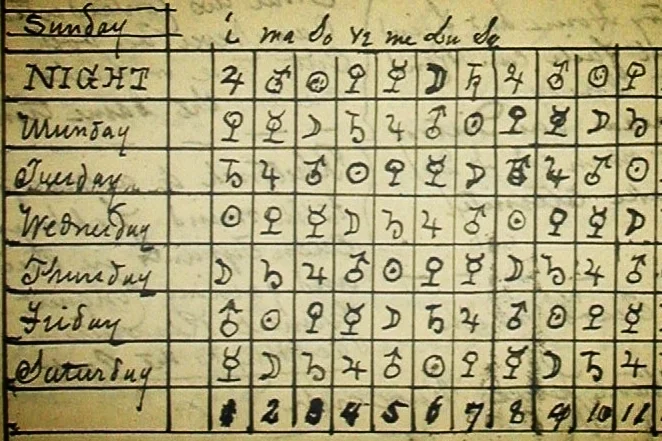 Sunday i ma So ve me Lu Sa
NIGHT ♃ ♂ ☉ ♀ ☿ ☽ ♄ ♃ ♂ ☉ ♀
Munday ♀ ☿ ☽ ♄ ♃ ♂ ☉ ♀ ☿ ☽ ♄
Tuesday ♄ ♃ ♂ ☉ ♀ ☿ ☽ ♄ ♃ ♂ ☉
Wednesday ☉ ♀ ☿ ☽ ♄ ♃ ♂ ☉ ♀ ☿ ☽
Thursday ☽ ♄ ♃ ♂ ☉ ♀ ☿ ☽ ♄ ♃ ♂
Friday ♂ ☉ ♀ ☿ ☽ ♄ ♃ ♂ ☉ ♀ ☿
Saturday ☿ ☽ ♄ ♃ ♂ ☉ ♀ ☿ ☽ ♄ ♃
1 2 3 4 5 6 7 8 9 10 11